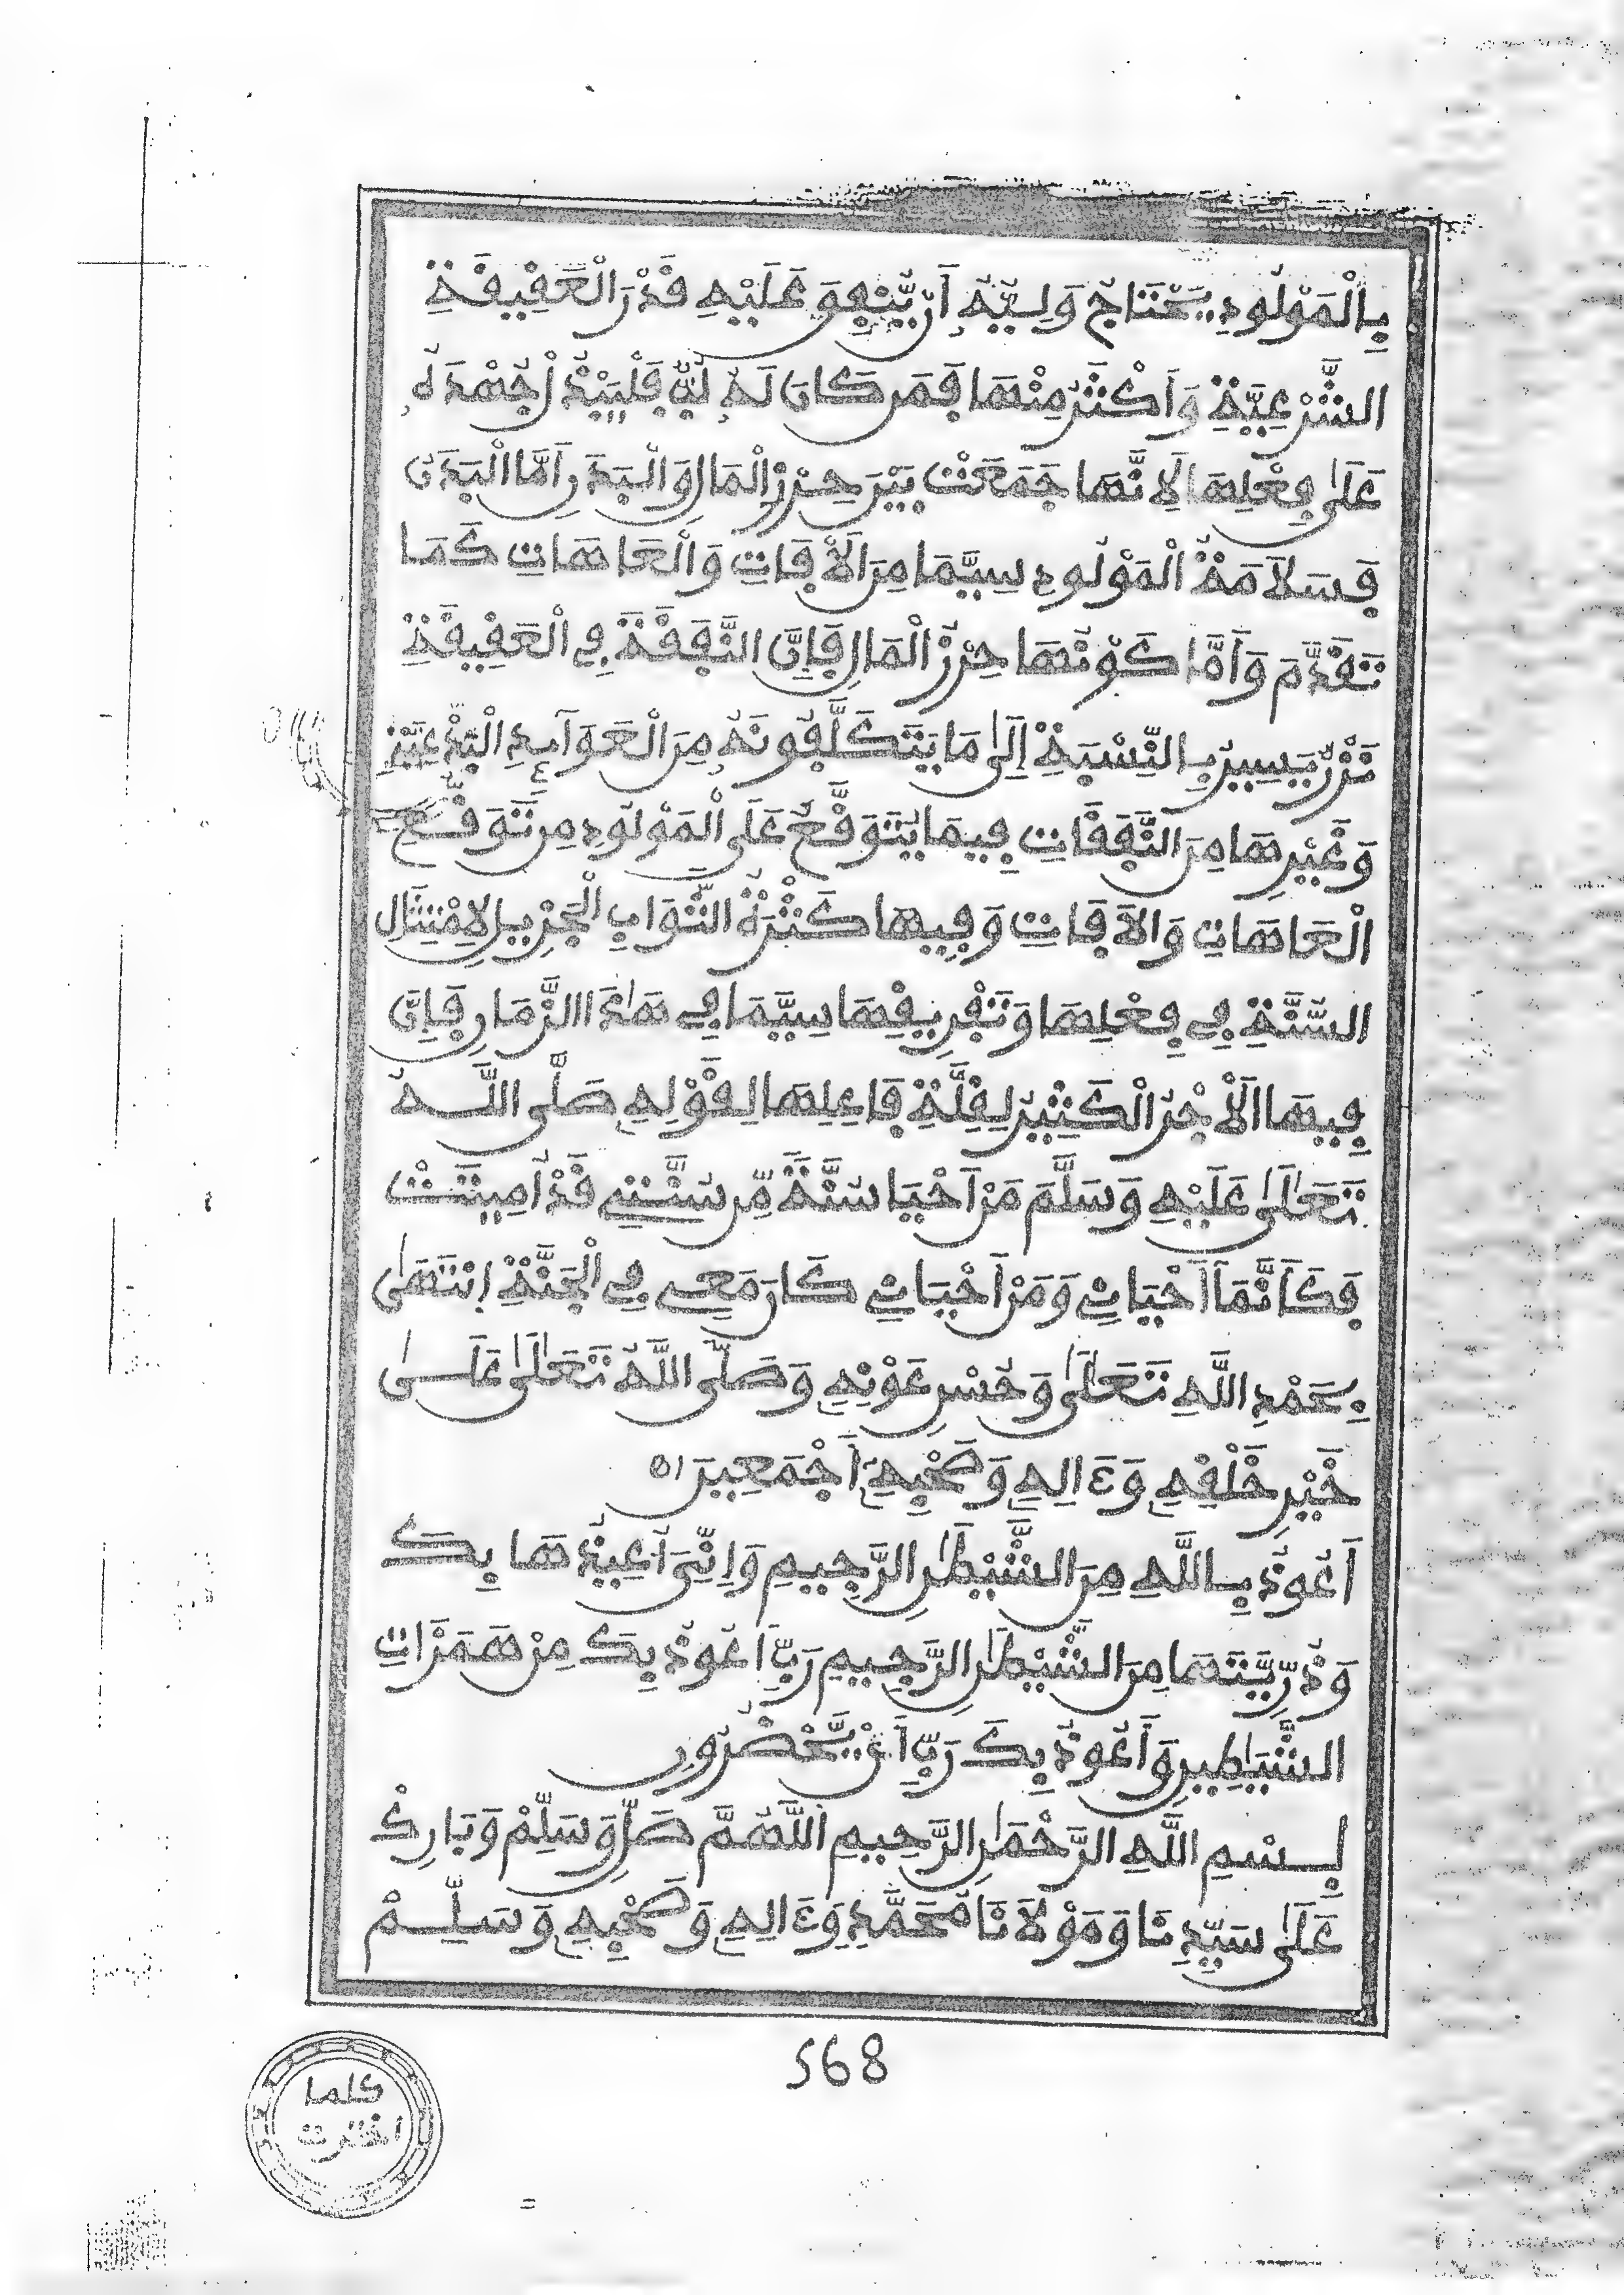 بِالْمَوْلُودِ يَحْتَاجُ وَلِيُّهُ أَن يُّنْفِقَ عَلَيْهِ قَدْرَ الْعَقِيقَةِ
الشَّرْعِيَّةِ وَأَكْثَرَ مِنْهَا فَمَن كَانَ لَهُ لُبٌّ فَلْيَبْذُلْ جُهْدَهُ
عَلَى فِعْلِهَا لِأَنَّهَا جَمَعَتْ بَيْنَ حِرْزِ الْمَالِ وَالْبَدَنِ أَمَّا الْبَدَنُ
فَسَلَامَةُ الْمَوْلُودِ سِيَّمَا مِنَ الْأَفَاتِ وَالْعَاهَاتِ كَمَا
تَقَدَّمَ وَأَمَّا كَوْنُهَا حِرْزَ الْمَالِ فَإِنَّ النَّفَقَةَ فِي الْعَقِيقَةِ
نَزْرٌ يَسِيرٌ بِالنِّسْبَةِ إِلَى مَا يَتَكَلَّفُونَهُ مِنَ الْعَوَآئِدِ الْبِدْعِيَّةِ
وَغَيْرِهَا مِنَ النَّفَقَاتِ فِيمَا يُتَوَقَّعُ عَلَى الْمَوْلُودِ مِن تَوَقُّعِ
الْعَاهَاتِ وَالْأَفَاتِ وَفِيهَا كَثْرَةُ الثَّوَابِ الْجَزِيلِ لِامْتِثَالِ
السُّنَّةِ فِي فِعْلِهَا وَتَفْرِيقِهَا سِيَّمَا فِي هَٰذَا الزَّمَانِ فَإِنَّ
فِيهَا الْأَجْرَ الْكَثِيرَ لِقِلَّةِ فَاعِلِهَا لِقَوْلِهِ صَلَّى اللَّهُ
تَعَالَىٰ عَلَيْهِ وَسَلَّمَ مَنْ أَحْيَا سُنَّةً مِّن سُنَّتِي قَدْ أُمِيتَتْ
فَكَأَنَّمَآ أَحْيَانِي وَمَنْ أَحْيَانِي كَانَ مَعِي فِي الْجَنَّةِ إِنْتَهَىٰ
بِحَمْدِ اللَّهِ تَعَالَىٰ وَحُسْنِ عَوْنِهِ وَصَلَّى اللَّهُ تَعَالَىٰ عَلَىٰ
خَيْرِ خَلْقِهِ وَءَالِهِ وَصَحْبِهِ أَجْمَعِينَ اه
أَعُوذُ بِاللَّهِ مِنَ الشَّيْطَٰنِ الرَّجِيمِ وَإِنِّيَ أُعِيذُهَا بِكَ
وَذُرِّيَّتَهَا مِنَ الشَّيْطَٰنِ الرَّجِيمِ رَبِّ أَعُوذُ بِكَ مِنْ هَمَزَاتِ
الشَّيَٰطِينِ وَأَعُوذُ بِكَ رَبِّ أَنْ يَّحْضُرُونِ
بِسْمِ اللَّهِ الرَّحْمَٰنِ الرَّحِيمِ اللَّهُمَّ صَلِّ وَسَلِّمْ وَبَارِكْ
عَلَىٰ سَيِّدِنَا وَمَوْلَانَا مُحَمَّدٍ وَءَالِهِ وَصَحْبِهِ وَسَلِّمْ
568
كلما
اخترت